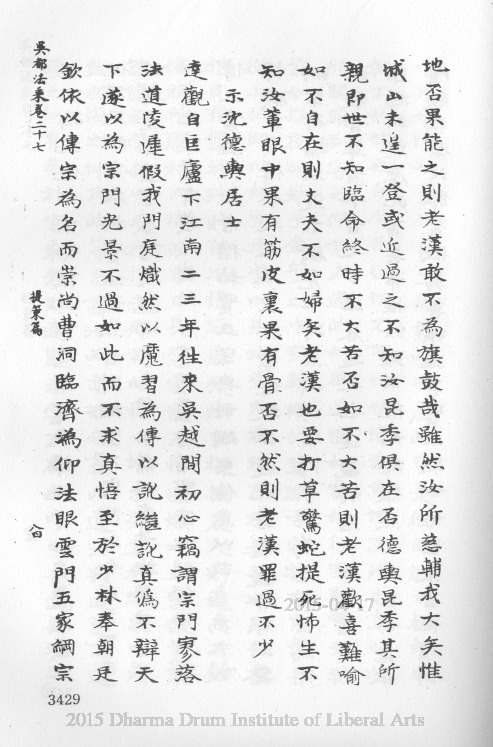 地否果能之則老漢敢不為旗鼓哉雖然汝所慈輔我大矣惟
城山未遑一登或近過之不知汝昆季俱在否德輿昆季其所
親即世不知臨命終時不大苦否如不大苦則老漢歡喜難喻
如不自在則丈夫不如婦矣老漢也要打草驚蛇提死怖生不
知汝輩眼中果有筋皮裏果有骨否不然則老漢罪過不少
示沈德輿居士
達觀自匡廬下江南二三年徃來吳越間初心竊謂宗門寥落
法道凌遲假我門庭熾然以魔習為傳以訛繼訛真偽不辯天
下遂以為宗門光景不過如此而不求真悟至於少林奉朝廷
欽依以傳宗為名而崇尚曹洞臨濟溈仰法眼雲門五家綱宗
吳都法乘卷二十七
提策篇
3429
2015-04-17
2015 Dharma Drum Institute of Liberal Arts